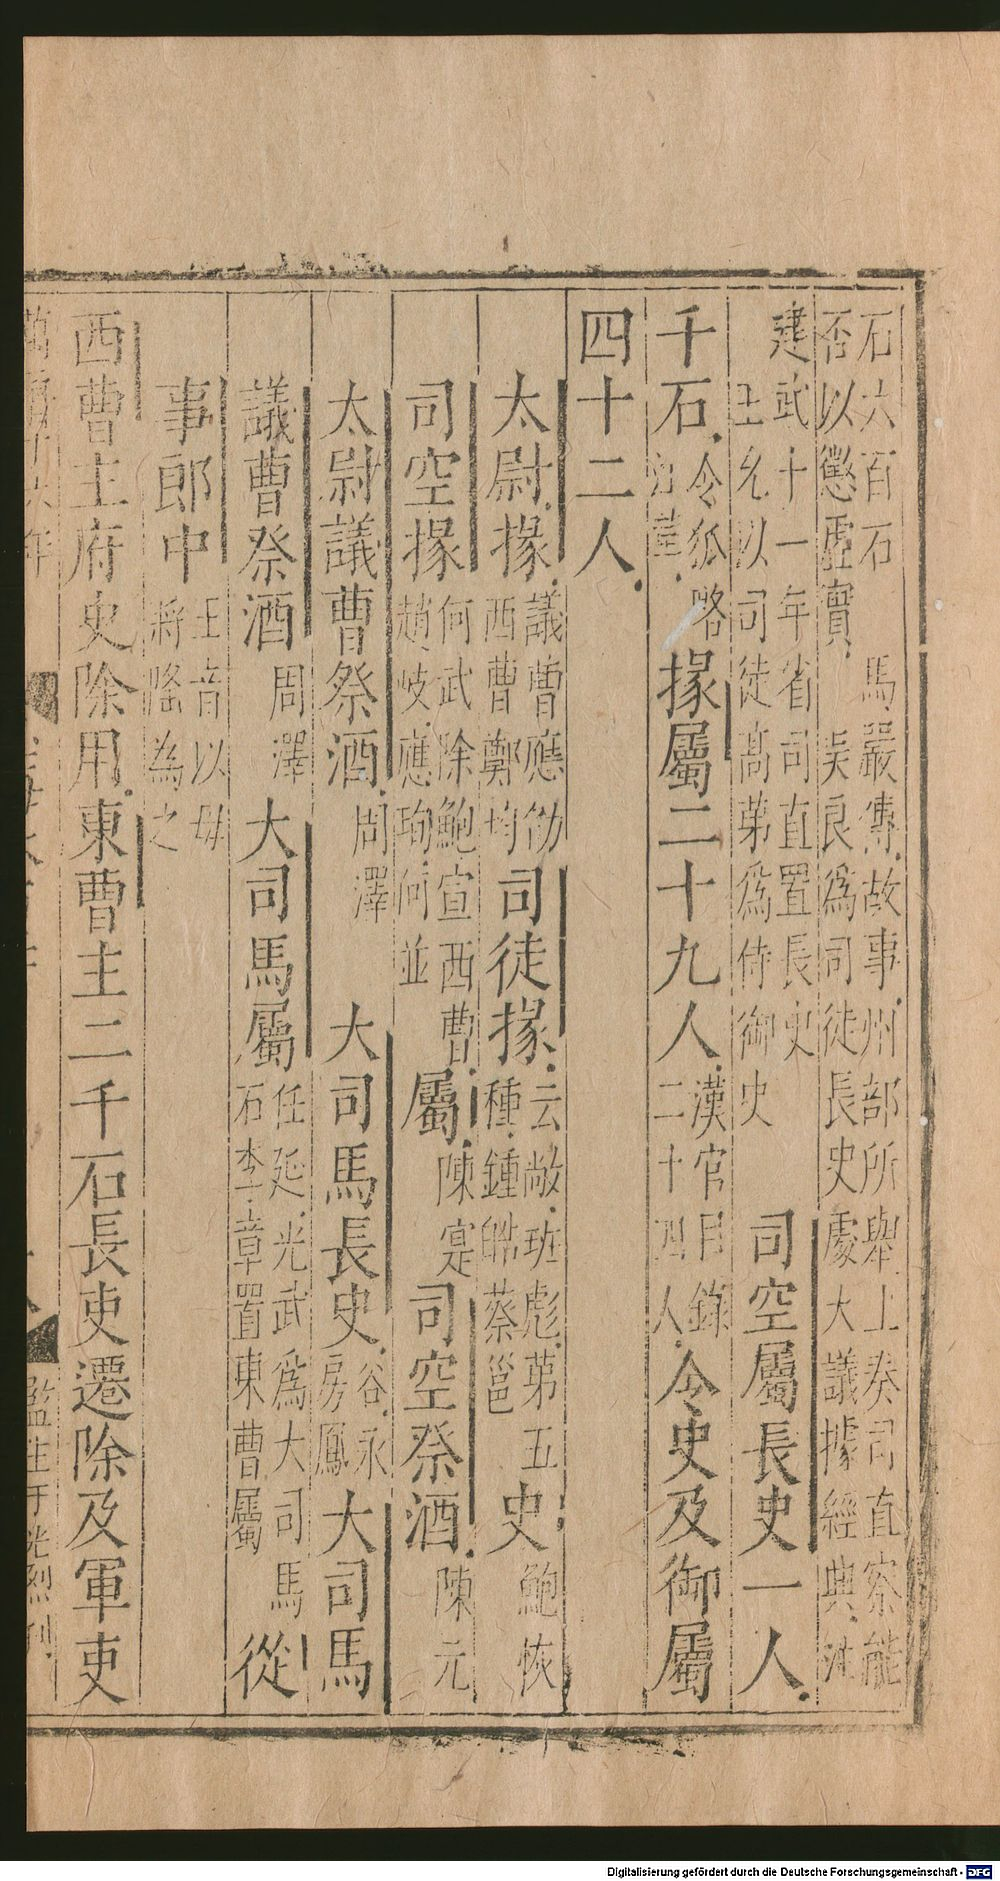 石六百石　馬嚴傳故事州部所舉上奏司直察能
否以懲虛實　吳良爲司徒長史處大議據經典
建武十一年省司直置長史
以司徒高苐爲侍御史
司空屬長史一人
千石
令狐略
掾屬二十九人
漢官目錄
二十四人
令史及御屬
四十二人
太尉掾
議曹應劭
西曹鄭均
司徒掾
云敞班彪苐五
種鍾皓蔡邕
史
鮑恢
司空掾
何武除鮑宣西曹
趙岐應珣何並
屬
陳寔
司空祭酒
陳元
太尉議曹祭酒
周澤
大司馬長史
谷永
房鳳
大司馬
議曹祭酒
周澤
大司馬屬
任延光武爲大司馬
石李章置東曹屬
從
事郎中
王音以毋
將隂為之
西曹主府史除用東曹主二千石長吏遷除及軍吏
萬曆十六年
監生于光烈刊
Digitalisierung gefördert durch die Deutsche Forschungsgemeinschaft - DFG